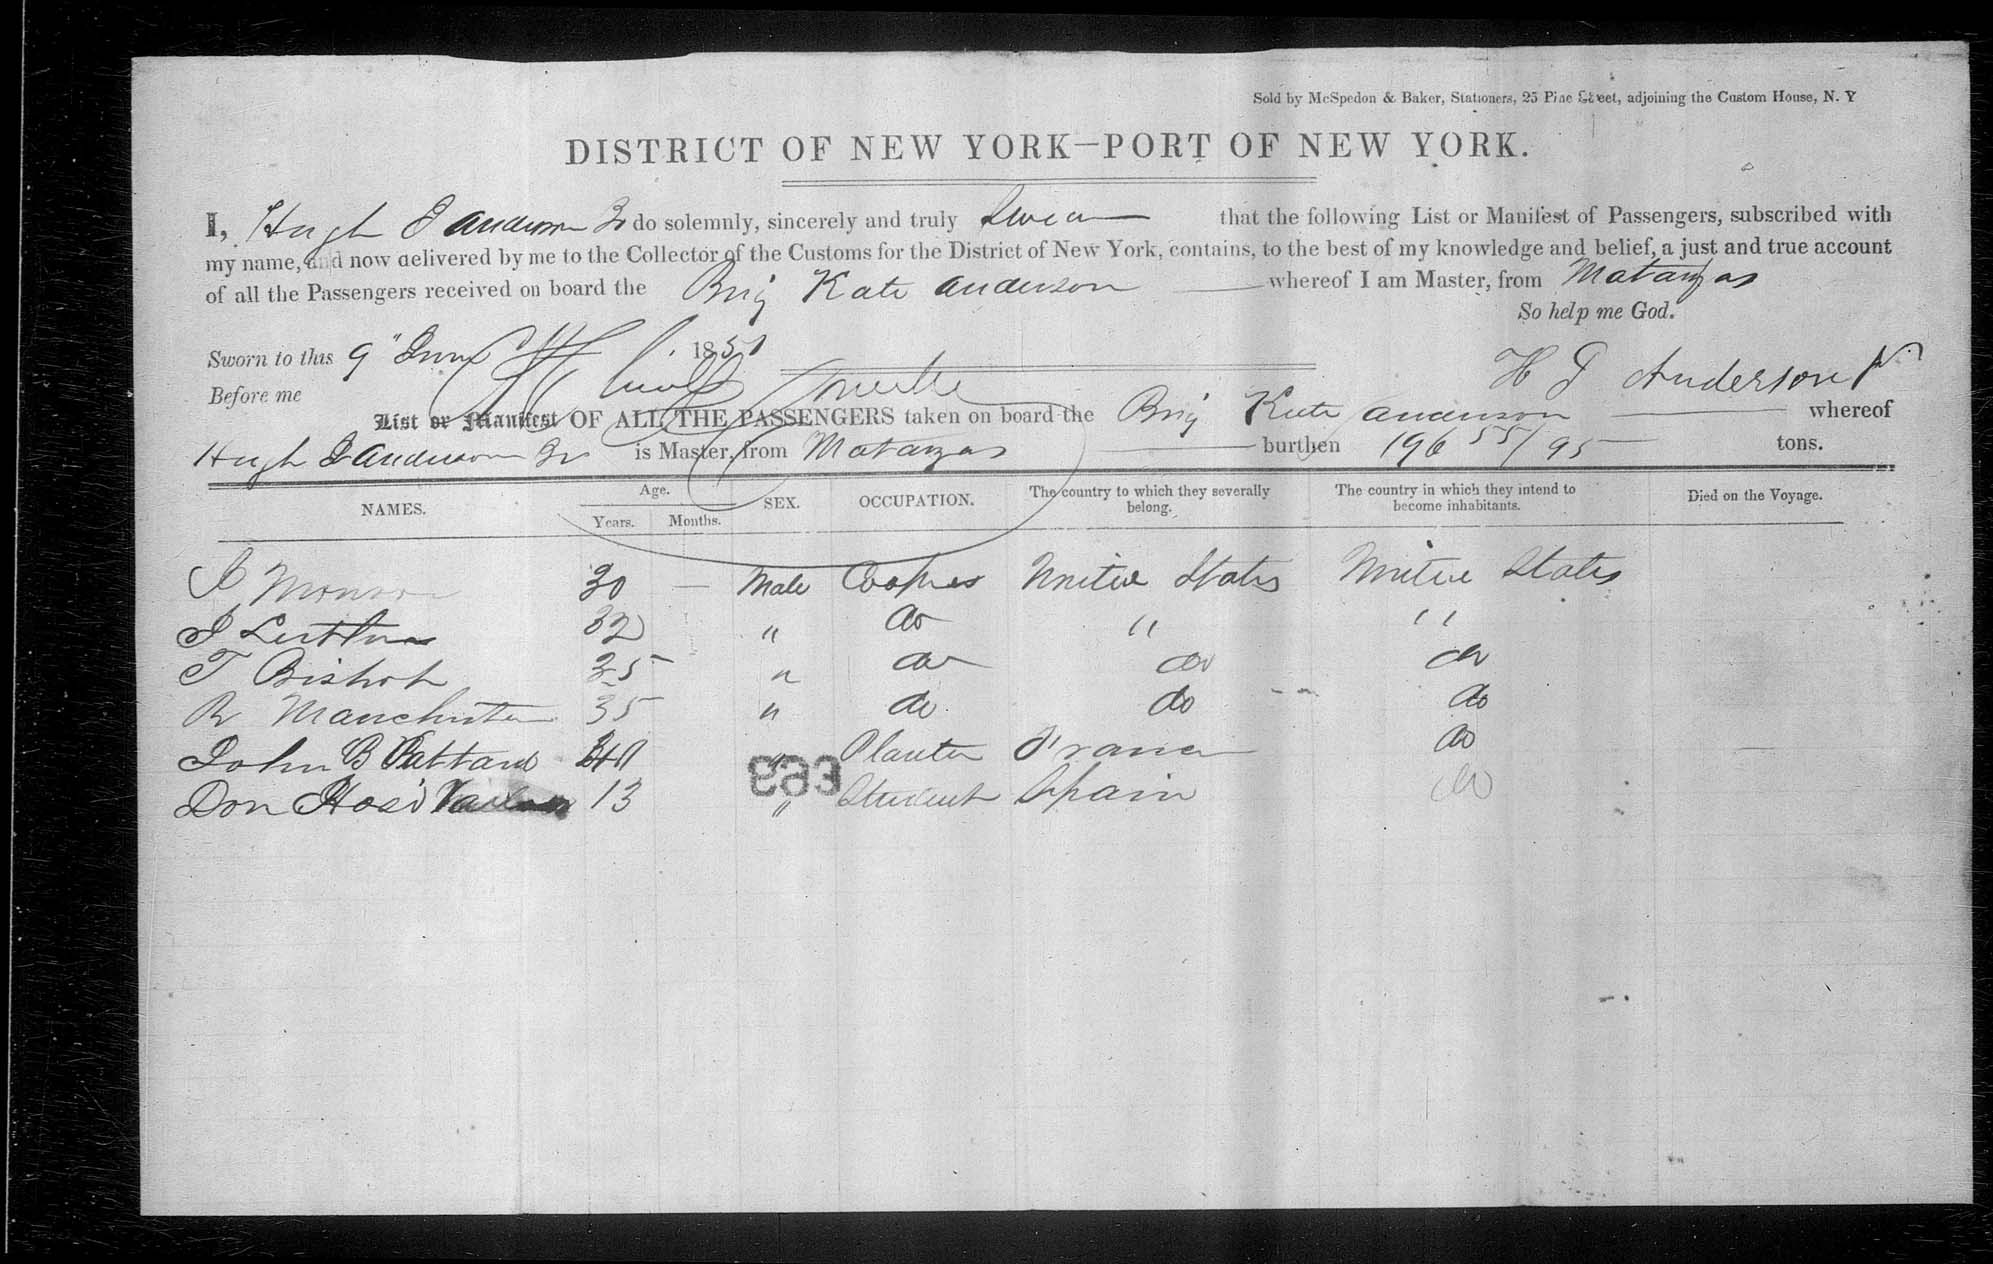 Sold by McSpedon & Baker, Stationers, 25 Pine Street, adjoining the Custom House, N. Y
DISTRICT OF NEW YORK—PORT OF NEW YORK.
I, Hugh J Anderson Jr do solemnly, sincerely and truly Swear that the following List or Manifest of Passengers, subscribed with
my name, and now delivered by me to the Collector of the Customs for the District of New York, contains, to the best of my knowledge and belief, a just and true account
of all the Passengers received on board the Brig Kate Anderson whereof I am Master, from Matanzas
So help me God.
Sworn to this 9" June 1851
H J Anderson Jr
Before me
List or Manifest OF ALL THE PASSENGERS taken on board the Brig Kate Anderson whereof
Hugh J Anderson Jr is Master, from Matanzas burthen 196 55/95 tons.
NAMES. Age. Years. Months. SEX. OCCUPATION. The country to which they severally belong. The country in which they intend to become inhabitants. Died on the Voyage.
30 — Male Coopers United States United States
J 32 " do " "
T Bishop 35 " do do do
R Manchester 35 " do do do
John B " Planter France do
Don 13 " Student Spain do
893